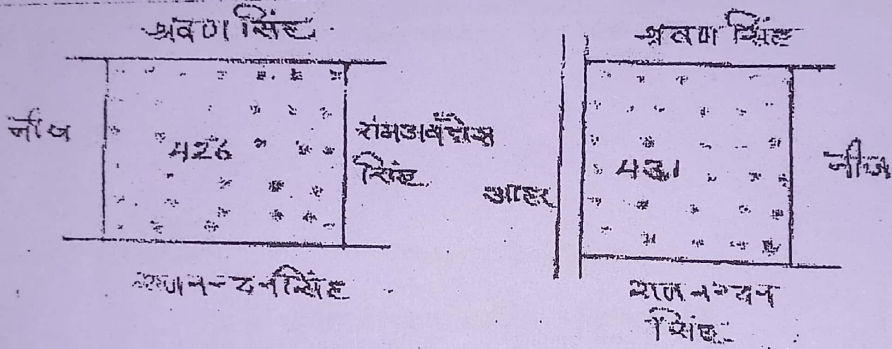 श्रवण सिंह
नीज
426
रामअवधेश
सिंह
राजनन्दन सिंह
श्रवण सिंह
आहर
431
नीज
राजनन्दन
सिंह